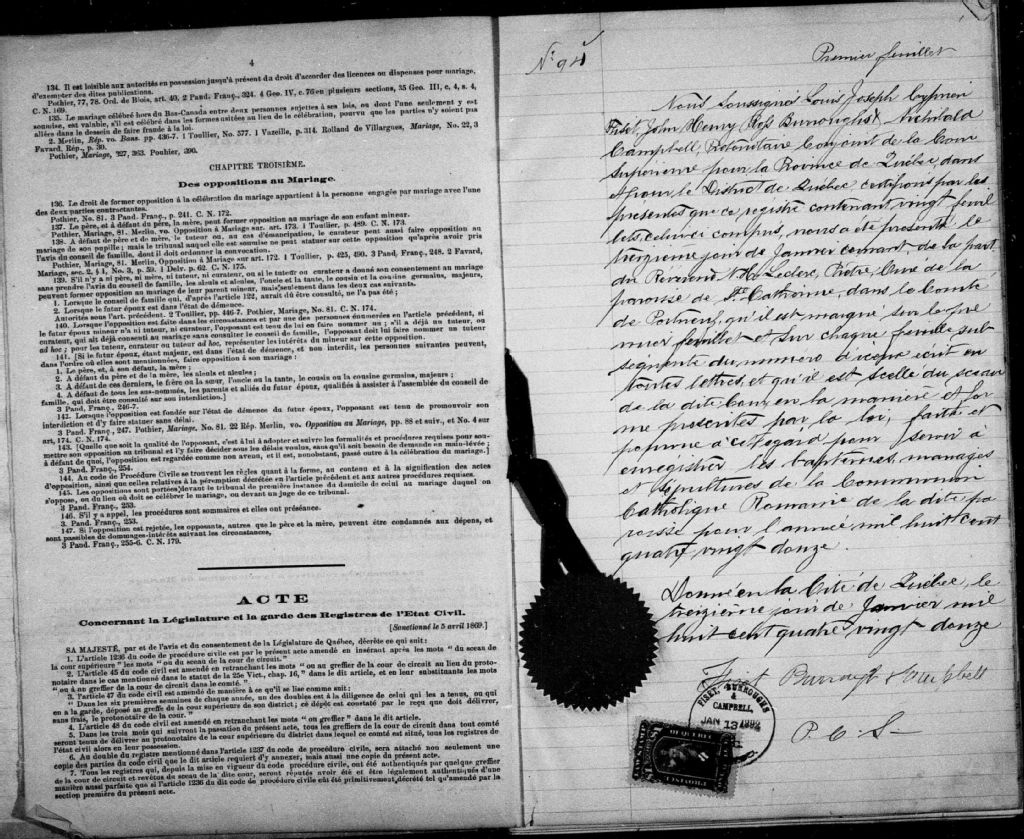 4
134. Il est loisible aux autorités en possession jusqu'à présent du droit d'accorder des licences ou dispenses pour mariage,
d'exempter des dites publications.
Pothier, 77, 78. Ord. de Blois, art. 40, 2 Pand. Franç., 324. 4 Geo. IV, c. 76 en plusieurs sections, 35 Geo. III, c. 4, s. 4,
C. N. 169.
135. Le mariage célébré hors du Bas-Canada entre deux personnes sujettes à ses lois, ou dont l'une seulement y est
soumise, est valable, s'il est célébré dans les formes usitées au lieu de la célébration, pourvu que les parties n'y soient pas
allées dans le dessein de faire fraude à la loi.
2 Merlin, Rép. vo. Bans. pp. 436-7. 1 Toullier, No. 577. 1 Vazeille, p. 314. Rolland de Villargues, Mariage, No. 22, 3
Favard. Rép., p. 30.
Pothier, Mariage, 327, 363. Pouhier, 390.
CHAPITRE TROISIÈME.
Des oppositions au Mariage.
136. Le droit de former opposition à la célébration du mariage appartient à la personne engagée par mariage avec l'une
des deux parties contractantes.
Pothier, No. 81. 3 Pand. Franç., p. 241. C. N. 172.
137. Le père, et à défaut du père, la mère, peut former opposition au mariage de son enfant mineur.
Pothier, Mariage, 81. Merlin, vo. Opposition à Mariage sur. art. 173. 1 Toullier, p. 489. C. N. 173.
138. A défaut de père et de mère, le tuteur où, au cas d'émancipation, le curateur peut aussi faire opposition au
mariage de son pupille; mais le tribunal auquel elle est soumise ne peut statuer sur cette opposition qu'après avoir pris
l'avis du conseil de famille, dont il doit ordonner la convocation.
Pothier, Mariage, 81. Merlin, Opposition à Mariage sur art. 172. 1 Toullier, p. 425, 490. 3 Pand. Franç., 248. 2 Favard,
Mariage, sec. 2, § 1, No. 3, p. 59. 1 Delv. p. 62. C. N. 175.
139. S'il n'y a ni père, ni mère, ni tuteur, ni curateur, ou si le tuteur ou curateur a donné son consentement au mariage
sans prendre l'avis du conseil de famille, les aïeuls et aïeules, l'oncle et la tante, le cousin et la cousine germains, majeurs,
peuvent former opposition au mariage de leur parent mineur, mais seulement dans les deux cas suivants.
1. Lorsque le conseil de famille qui, d'après l'article 122, aurait dû être consulté, ne l'a pas été;
2. Lorsque le futur époux est dans l'état de démence.
Autorités sous l'art. précédent. 2 Toullier, pp. 446-7. Pothier, Mariage, No. 81. C. N. 174.
140. Lorsque l'opposition est faite dans les circonstances et par une des personnes énumérées en l'article précédent, si
le futur époux mineur n'a ni tuteur, ni curateur, l'opposant est tenu de lui en faire nommer un; s'il a déjà un tuteur, ou
curateur, qui ait déjà consenti au mariage sans consulter le conseil de famille, l'opposant doit lui faire nommer un tuteur
ad hoc; pour les tuteur, curateur ou tuteur ad hoc, représenter les intérêts du mineur sur cette opposition.
141. [Si le futur époux, étant majeur, est dans l'état de démence, et non interdit, les personnes suivantes peuvent,
dans l'ordre où elles sont mentionnées, faire opposition à son mariage:
1. Le père, et, à son défaut, la mère;
2. A défaut du père et de la mère, les aïeuls et aïeules;
3. A défaut de ces derniers, le frère ou la sœur, l'oncle ou la tante, le cousin ou la cousine germains, majeurs;
4. A défaut de tous les sus-nommés, les parents et alliés du futur époux, qualifiés à assister à l'assemblée du conseil de
famille, qui doit être consulté sur son interdiction.]
3 Pand. Franç., 246-7.
142. Lorsque l'opposition est fondée sur l'état de démence du futur époux, l'opposant est tenu de promouvoir son
interdiction et d'y faire statuer sans délai.
3 Pand. Franç., 247. Pothier, Mariage, No. 81. 22 Rép. Merlin, vo. Opposition au Mariage, pp. 88 et suiv., et No. 4 sur
art. 174. C. N. 174.
143. [Quelle que soit la qualité de l'opposant, c'est à lui à adopter et suivre les formalités et procédures requises pour sou-
mettre son opposition au tribunal et l'y faire décider sous les délais voulus, sans qu'il soit besoin de demande en main-levée;
à défaut de quoi, l'opposition est regardée comme non avenu, et il est, nonobstant, passé outre à la célébration du mariage.]
3 Pand. Franç., 254.
144. Au Code de Procédure Civile se trouvent les règles quant à la forme, au contenu et à la signification des actes
d'opposition, ainsi que celles relatives à la péremption décrétée en l'article précédent et aux autres procédures requises.
145. Les oppositions sont portées devant le tribunal de première instance du domicile de celui au mariage duquel on
s'oppose, ou du lieu où doit se célébrer le mariage, ou devant un juge de ce tribunal.
3 Pand. Franç., 253.
146. S'il y a appel, les procédures sont sommaires et elles ont préséance.
3. Pand. Franç., 253.
147. Si l'opposition est rejetée, les opposants, autres que le père et la mère, peuvent être condamnés aux dépens, et
sont passibles de dommages-intérêts suivant les circonstances,
3 Pand. Franç., 255-6. C. N. 179.
ACTE
Concernant la Législature et la garde des Registres de l'Etat Civil.
[Sanctionné le 5 avril 1869.]
SA MAJESTÉ, par et de l'avis et du consentement de la Législature de Québec, décrète ce qui suit:
1. L'article 1236 du code de procédure civile est par le présent acte amendé en insérant après les mots "du sceau de
la cour supérieure" les mots "ou du sceau de la cour de circuit."
2. L'article 45 du code civil est amendé en retranchant les mots "ou au greffier de la cour de circuit au lieu du proto-
notaire dans le cas mentionné dans le statut de la 25e Vict., chap. 16," dans le dit article, et en leur substituant les mots
"ou à un greffier de la cour de circuit dans le comté."
3. l'article 47 du code civil est amendé de manière à ce qu'il se lise comme suit:
"Dans les six premières semaines de chaque année, un des doubles est à la diligence de celui qui les a tenus, ou qui
en a la garde, déposé au greffe de la cour supérieure de son district; ce dépôt est constaté par le reçu que doit délivrer,
sans frais, le protonotaire de la cour."
4. L'article 48 du code civil est amendé en retranchant les mots "ou greffier" dans le dit article.
5. Dans les trois mois qui suivront la passation du présent acte, tous les greffiers de la cour de circuit dans tout comté
seront tenus de délivrer au protonotaire de la cour supérieure du district dans lequel ce comté est situé, tous les registres de
l'état civil alors en leur possession.
6. Au double du registre mentionné dans l'article 1237 du code de procédure civile, sera attaché non seulement une
copie des parties du code civil que le dit article requiert d'y annexer, mais aussi une copie du présent acte.
7. Tous les registres qui, depuis la mise en vigueur du code de procédure civile, ont été authentiqués par quelque greffier
de la cour de circuit et revêtus du sceau de la dite cour, seront réputés avoir été et être légalement authentiqués d'une
manière aussi parfaite que si l'article 1236 du dit code de procédure civile eût été primitivement décrété tel qu'amendé par la
section première du présent acte.
No 94
Premier feuillet
Nous Soussignés Louis Joseph Cyprien
Fiset, John Henry Ross Burroughs & Archibald
Campbell, Protonotaire Conjoint de la Cour
Supérieure pour la Province de Québec, dans
et pour le District de Québec certifions par les
présentes que ce registre contenant vingt feuil
lets, celui-ci compris, nous a été présenté le
treizième jour de Janvier courant, de la part
du Révérend Leclerc, Prêtre, Curé de la
paroisse de Ste Catherine, dans le Comté
de Portneuf, qu'il est marqué sur le pre
mier feuillet et sur chaque feuille sub
séquente du numéro d'icelui écrit en
toutes lettres, et qu'il est scellé du sceau
de la dite Cour, en la manière et for
me présentes par la loi,
pour servir à
enregistrer les baptêmes, mariages
et sépultures de la Communion
Catholique Romaine de la dite pa
roisse pour l'année mil huit cent
quatre vingt douze.
Donné en la Cité de Québec, le
treizième jour de Janvier mil
huit cent quatre vingt douze
Fiset Burroughs & Campbell
P. C. S.
FISET, BURROUGHS
& CAMPBELL,
JAN 13 1892